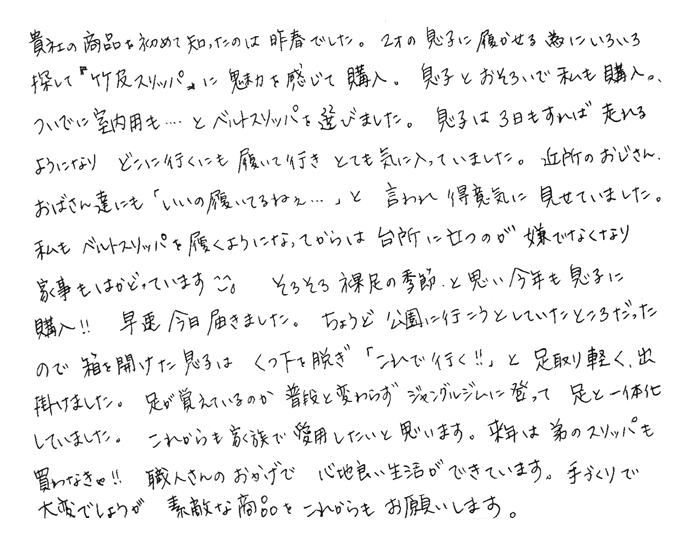 貴社の商品を初めて知ったのは昨春でした。2才の息子に履かせる為にいろいろ
探して『竹皮スリッパ』に魅力を感じて購入。息子とおそろいで私も購入。、
ついでに室内用も‥‥とベルトスリッパを選びました。息子は3日もすれば走れる
ようになり どこに行くにも履いて行きとても気に入っていました。近所のおじさん、
おばさん達にも「いいの履いてるねぇ…」と 言われ得意気に見せていました。
私もベルトスリッパを履くようになってからは台所に立つのが嫌でなくなり
家事もはかどっています。 そろそろ裸足の季節、と思い今年も息子に
購入!! 早速今日届きました。ちょうど公園に行こうとしていたところだった
ので箱を開けた息子は くつ下を脱ぎ「これで行く!!」と足取り軽く、出
掛けました。足が覚えているのか普段と変わらずジャングルジムに登って 足と一体化
していました。これからも家族で愛用したいと思います。来年は弟のスリッパも
買わなきゃ!! 職人さんのおかげで 心地良い生活ができています。手づくりで
大変でしょうが 素敵な商品をこれからもお願いします。